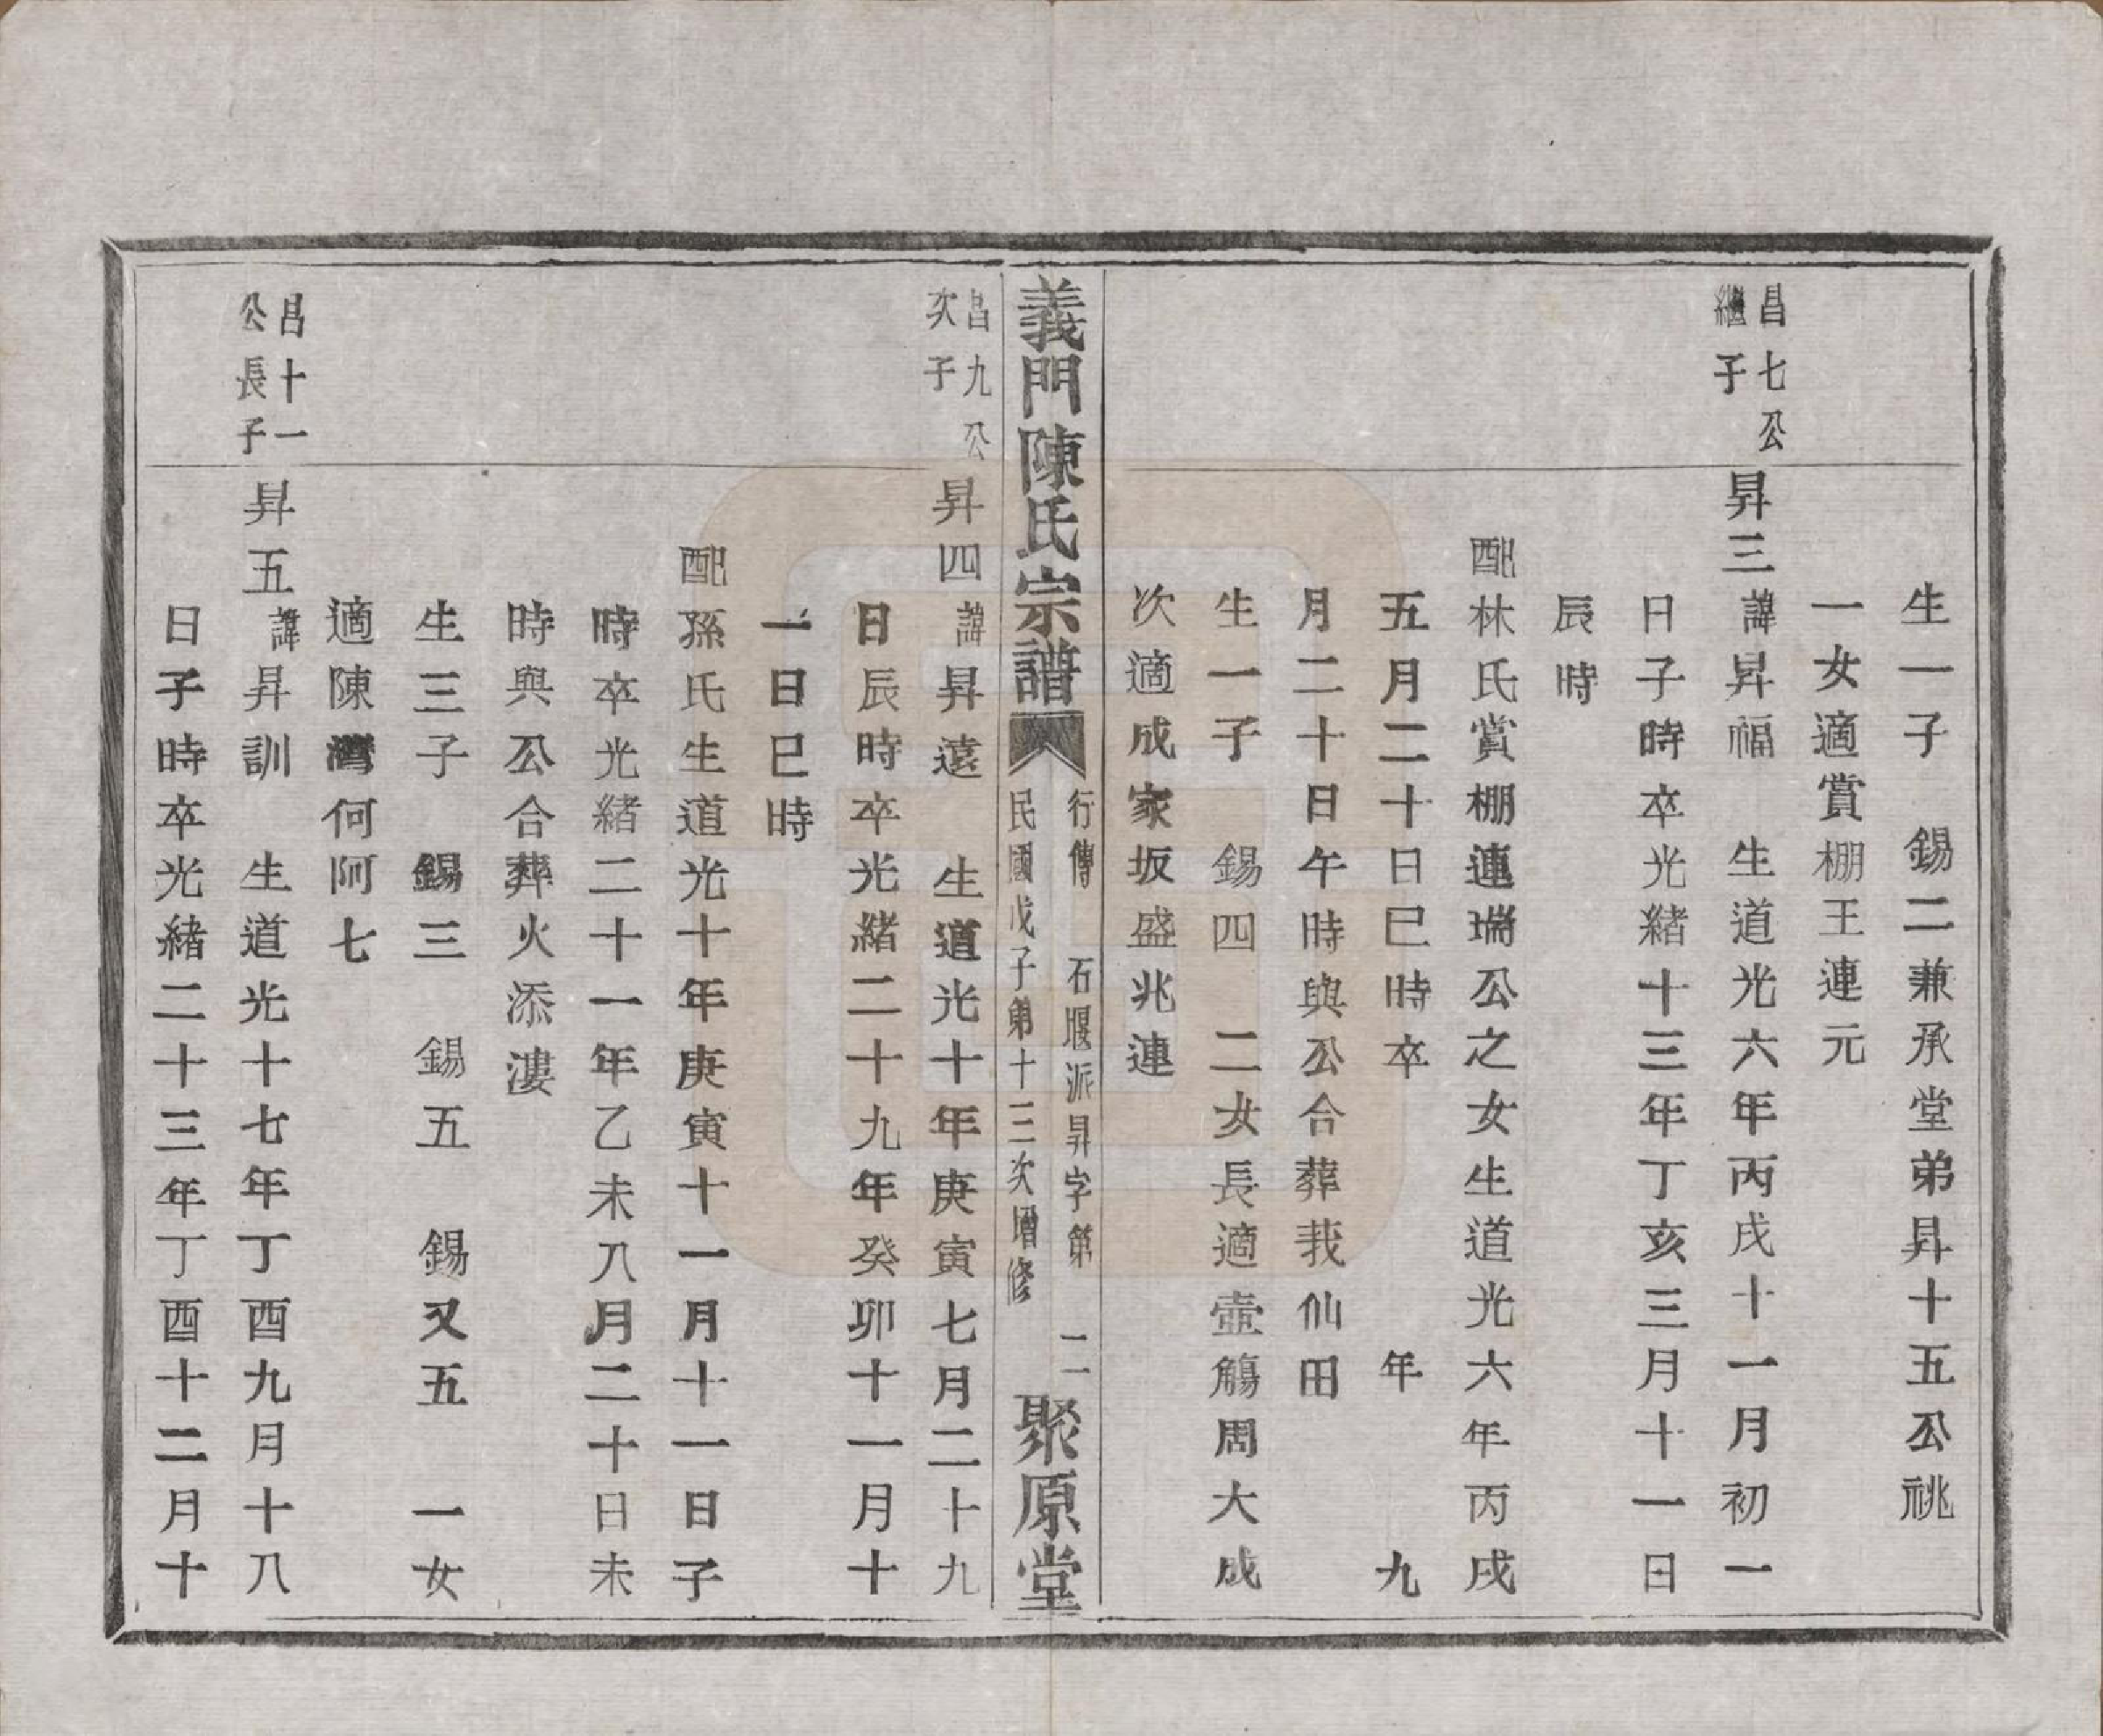 生一子　錫二兼承堂弟昇十五公祧
一女適賞棚王連元
昌七公
繼子
昇三諱昇福　生道光六年丙戌十一月初一
日子時卒光緒十三年丁亥三月十一日
辰時
配林氏賞棚連瑞公之女生道光六年丙戌
五月二十日巳時卒　　　年　　九
月二十日午時與公合葬莪仙田
生一子　錫四　二女長適壺觴周大成
次適成家坂盛兆連
義門陳氏宗譜
行傳　石堰派昇字第　二一
民國戊子第十三次增修
聚原堂
昌九公
次子
昇四諱昇遠　生道光十年庚寅七月二十九
日辰時卒光緒二十九年癸卯十一月十
一日巳時
配孫氏生道光十年庚寅十一月十一日子
時卒光緒二十一年乙未八月二十日未
時與公合葬火添漊
生三子　錫三　錫五　錫又五　一女
適陳灣何阿七
昌十一
公長子
昇五諱昇訓　生道光十七年丁酉九月十八
日子時卒光緒二十三年丁酉十二月十